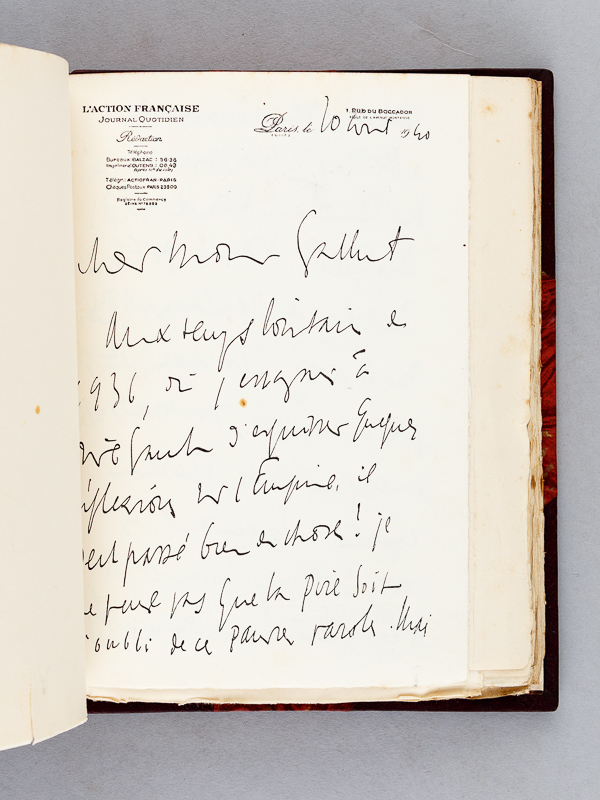 L'ACTION FRANÇAISE
JOURNAL QUOTIDIEN
Rédaction
Téléphone
Bureaux BALZAC : 36-36
Télégr: ACTIOFRAN-PARIS
Chèques Postaux PARIS
Registre du Commerce
1, RUE DU BOCCADOR
Paris, le 20 avril 1940
cher Monsieur
Aux temps lointain de
1936, où j'essayais à
d'esquisser quelques
réflexions sur l'Empire, il
s'est passé bien des choses ! je
ne pense pas que la pire soit
l'oubli de ces pauvres paroles. Mais